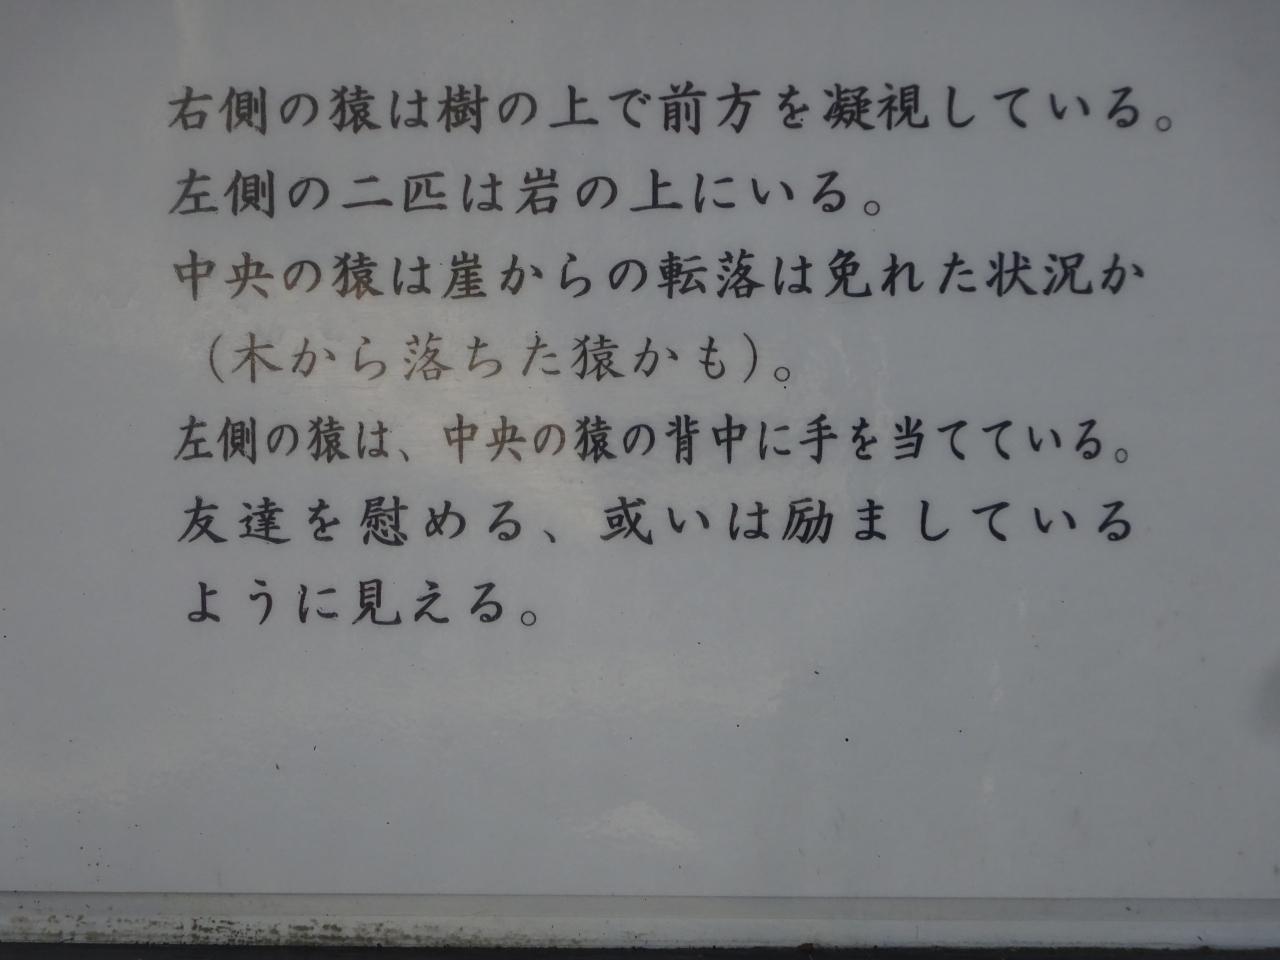 右側の猿は樹の上で前方を凝視している。
左側の二匹は岩の上にいる。
中央の猿は崖からの転落は免れた状況か
（木から落ちた猿かも）。
左側の猿は、中央の猿の背中に手を当てている。
友達を慰める、或いは励ましている
ように見える。